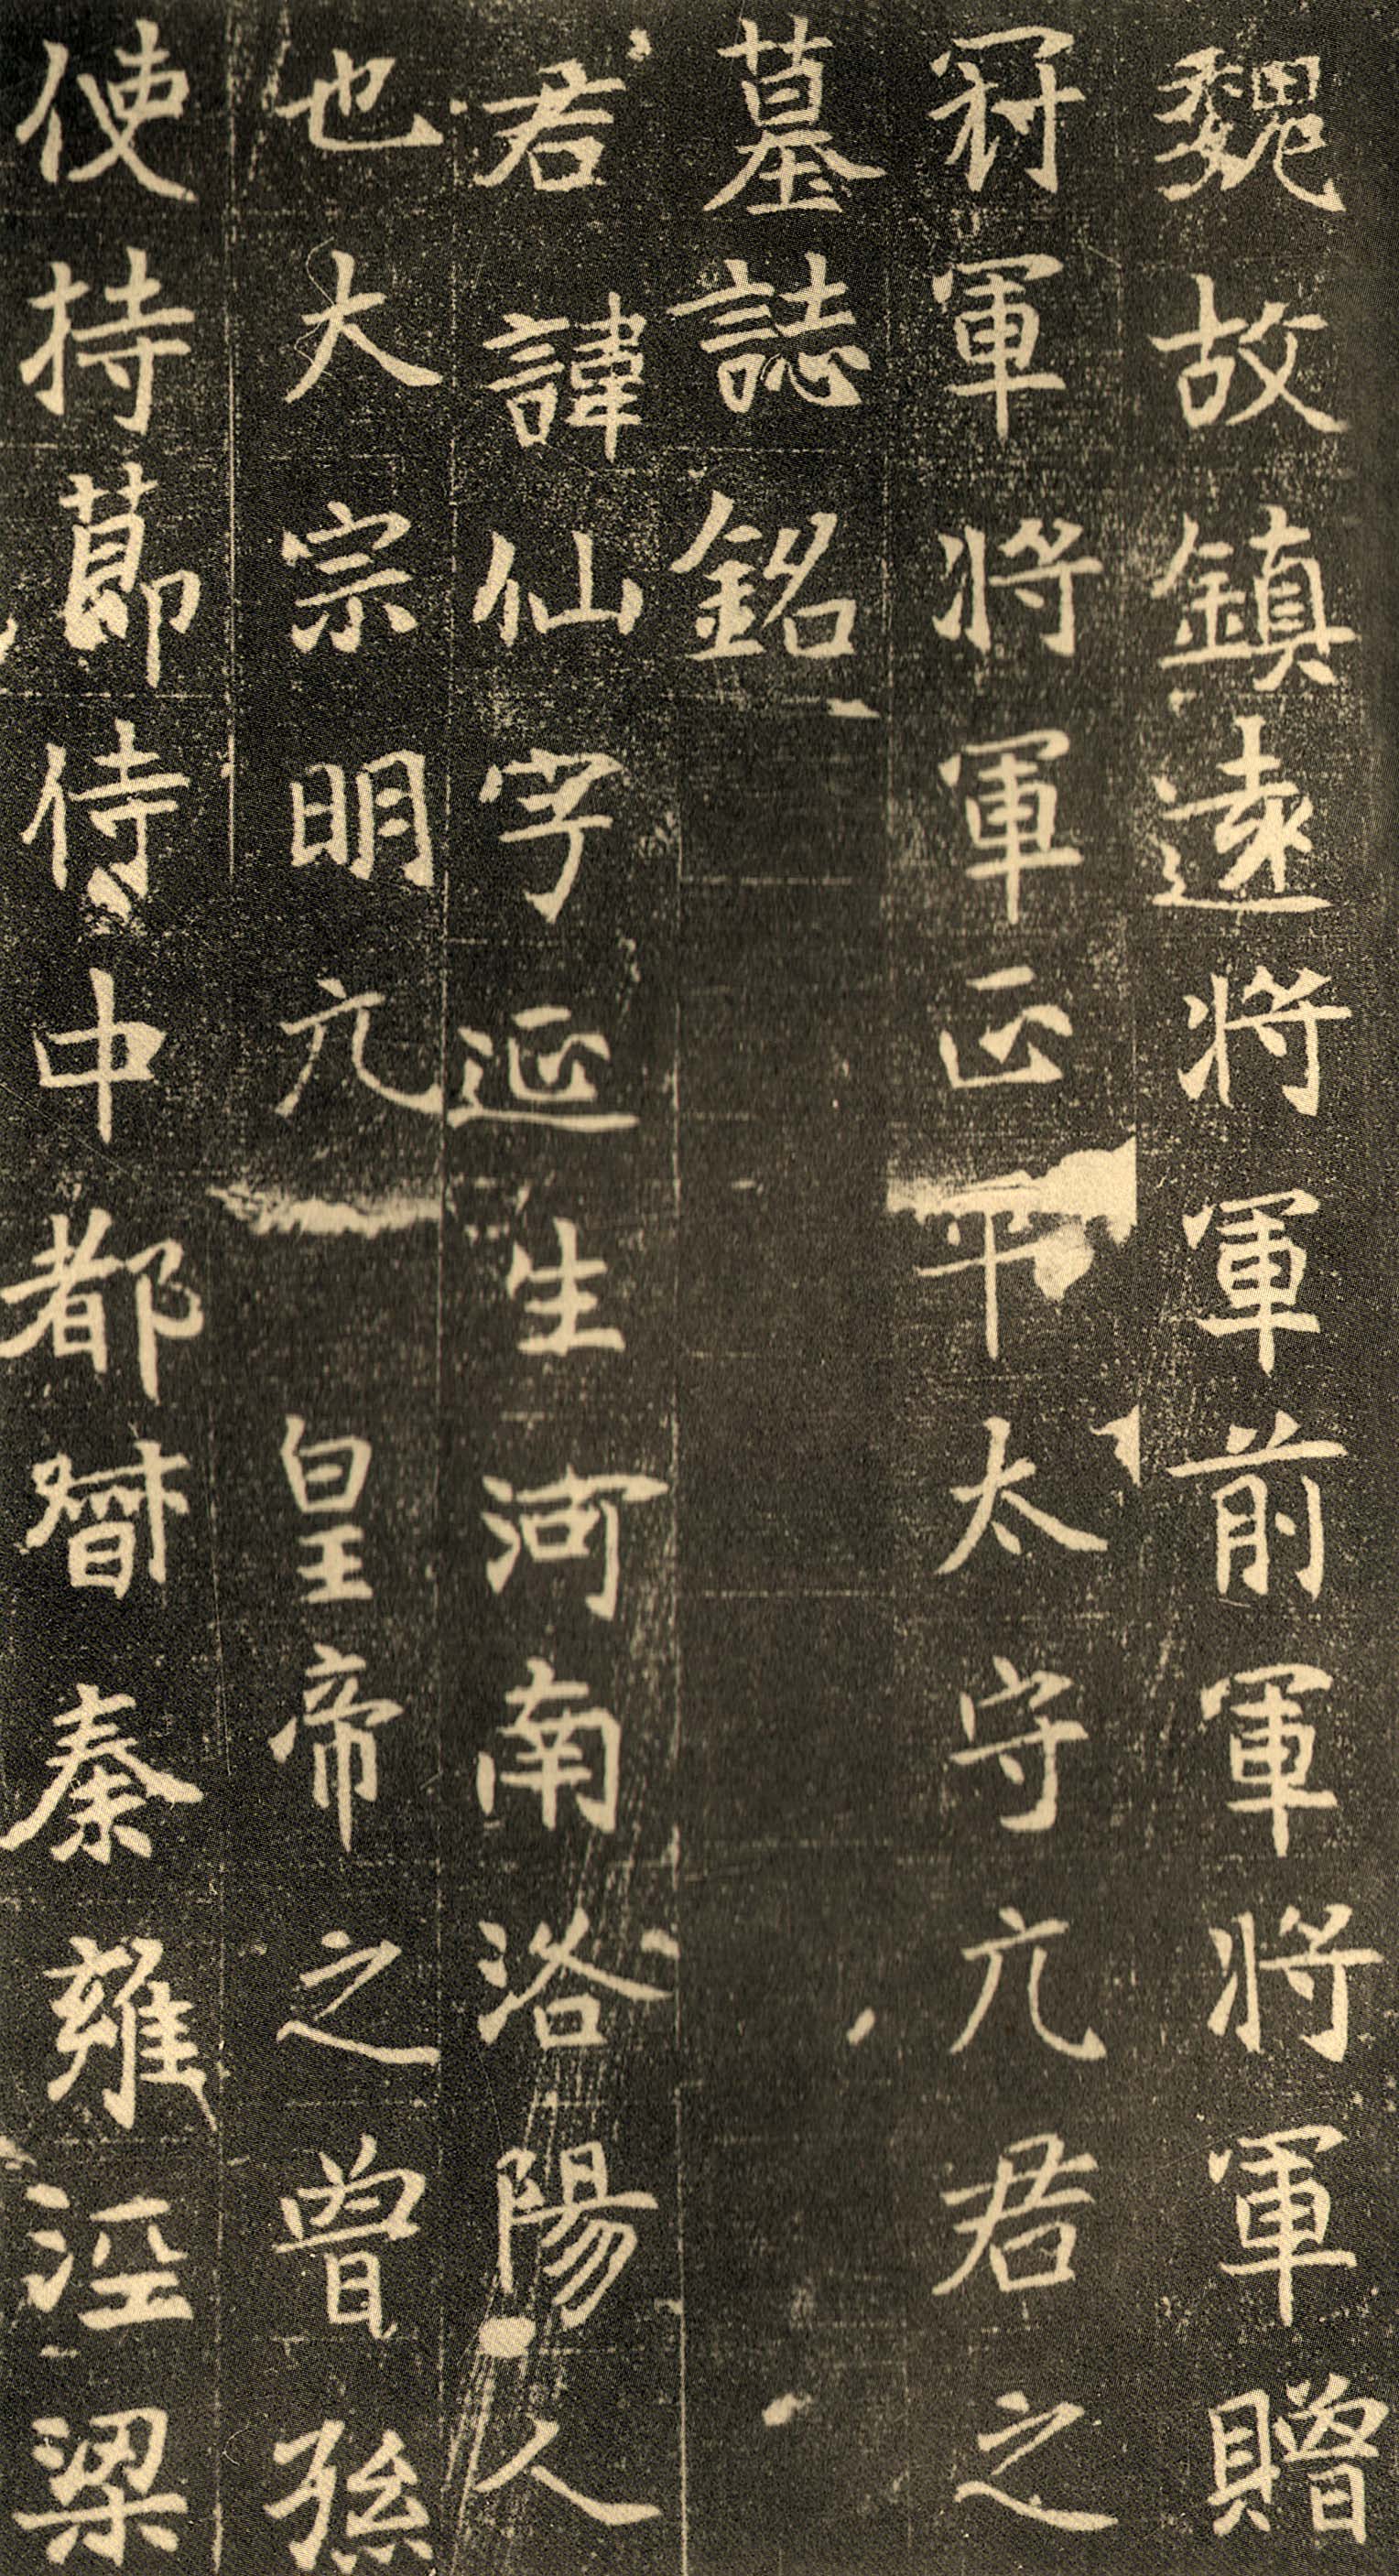 魏故鎮遠將軍前軍將軍贈
冠軍將軍正平太守元君之
墓誌銘
君諱仙字延生河南洛陽人
也大宗明元皇帝之曾孫
使持節侍中都督秦雍涇梁